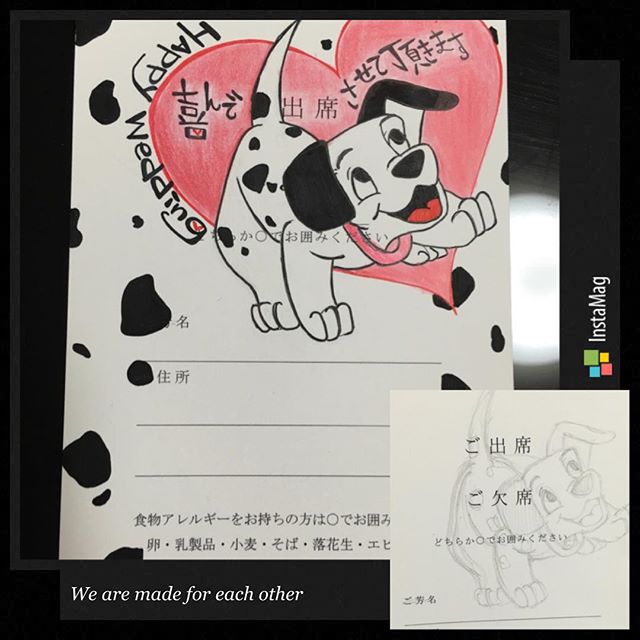 Happy Wedding
喜んで 出席 させて頂きます
どちらか〇でお囲みください
芳名
住所
食物アレルギーをお持ちの方は〇でお囲み
卵・乳製品・小麦・そば・落花生・エビ
InstaMag
ご出席
ご欠席
どちらか〇でお囲みください
ご芳名
We are made for each other